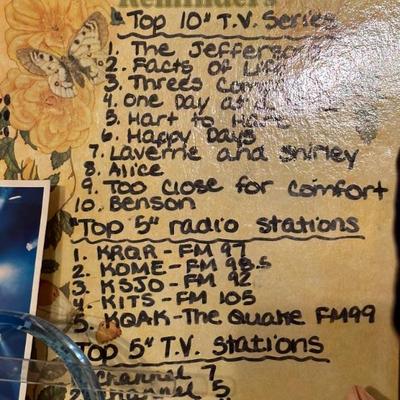 Reminders
"Top 10" T.V. Series
1. The Jeffersons
2. Facts of Life
3. Threes Com
4. One Day at a
5. Hart to Hart
6. Happy Days
7. Laverne and Shirley
8. Alice
9. Too Close for Comfort
10. Benson
"Top 5" radio stations
1. KRQR-FM 97
2. KOME-FM 98.5
3. KSJO-FM 92
4. KITS-FM 105
5. KQAK-The Quake FM99
"Top 5" T.V. Stations
Channel 7
2. Channel 5